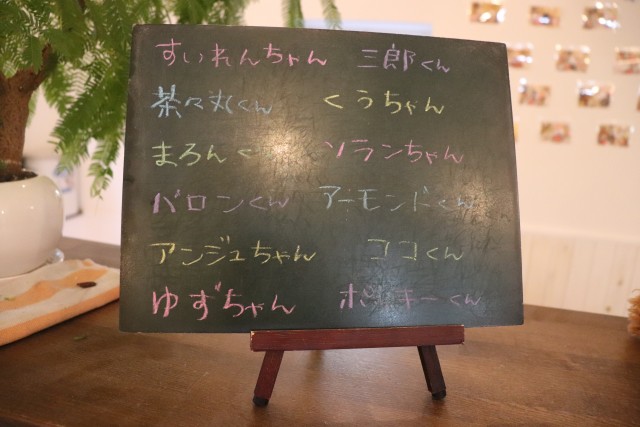 すいれんちゃん 三郎くん
茶々丸くん くうちゃん
まろんく ソランちゃん
バロンくん アーモンドくん
アンジュちゃん ココくん
ゆずちゃん ポッキーくん